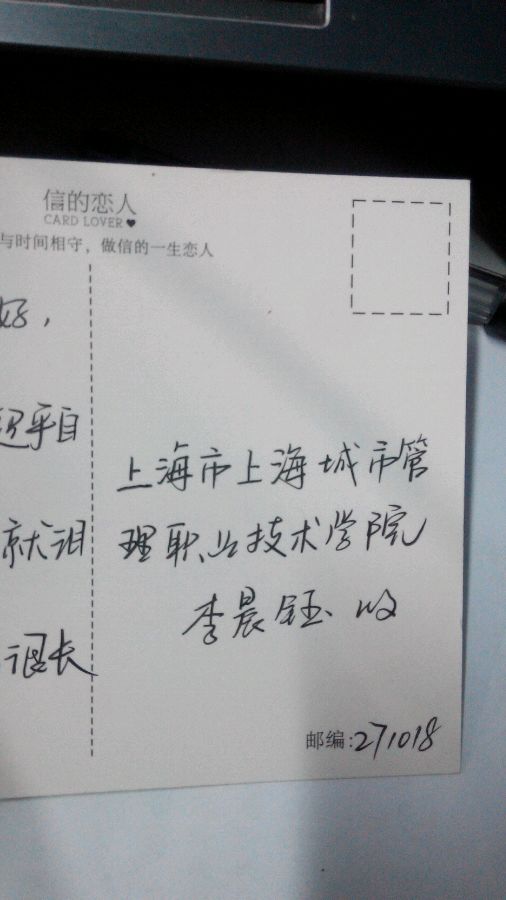 信的恋人
CARD LOVER
与时间相守，做信的一生恋人
好，
平自
就泪
很长
上海市上海城市管
理职业技术学院
李晨钰 收
邮编:271018